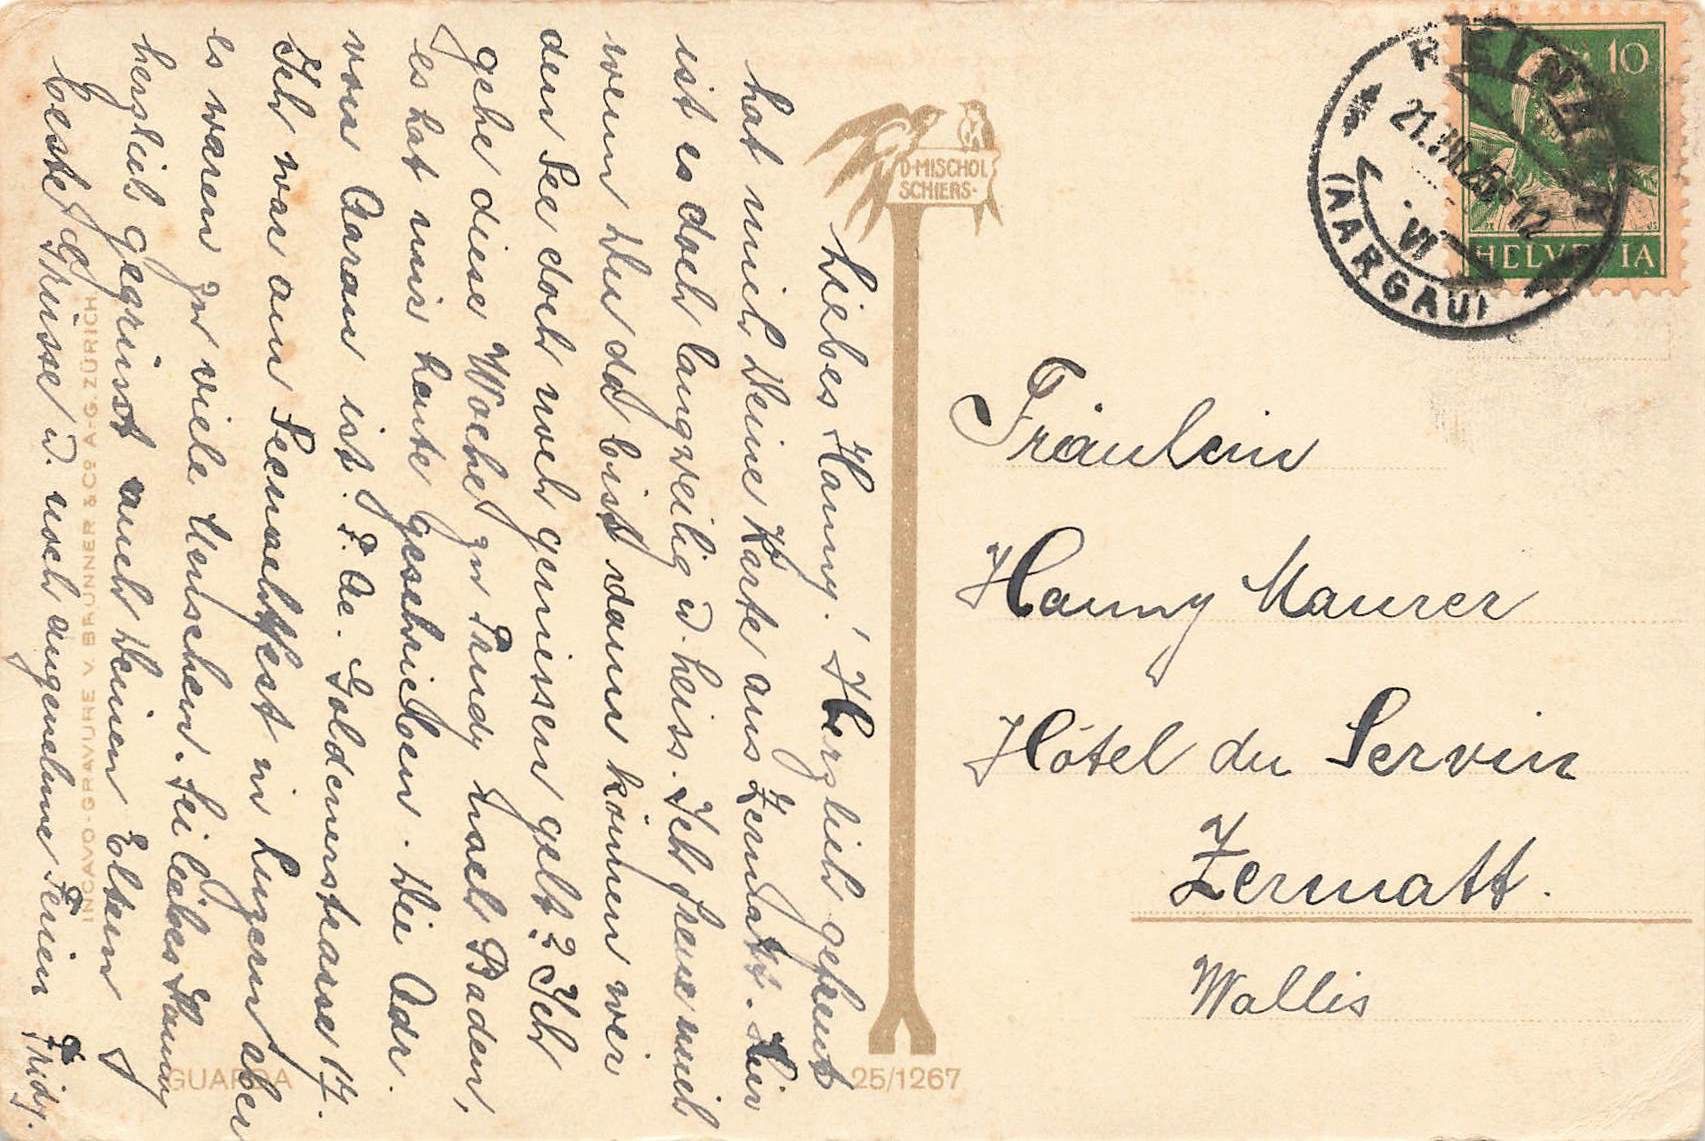 Liebes Hanny! Herzlich gefreut
hat mich Deine Karte aus Zermatt. Hier
ist es doch langweilig u. heiss. Ich freue mich
wenn Du da bist dann können wir
den See doch noch geniessen gelt? Ich
gehe diese Woche zu Trudy nach Baden,
es hat mir heute geschrieben. Die Adr.
von Aarau ist: F. Ae. Goldernstrasse 17.
Ich war am Seenachtfest in Luzern aber
es waren zu viele Menschen. Sei liebes Hanny
herzlich gegrüsst auch Deinen Eltern
beste Grüsse u. noch angenehme Ferien
Fräulein
Hanny Maurer
Hôtel du Servin
Zermatt.
Wallis
D·MISCHOL
SCHIERS·
INCAVO-GRAVURE V. BRUNNER & Co A.-G. ZÜRICH
GUARDA
25/1267
10
HELVETIA
REINACH
(AARGAU)
VI